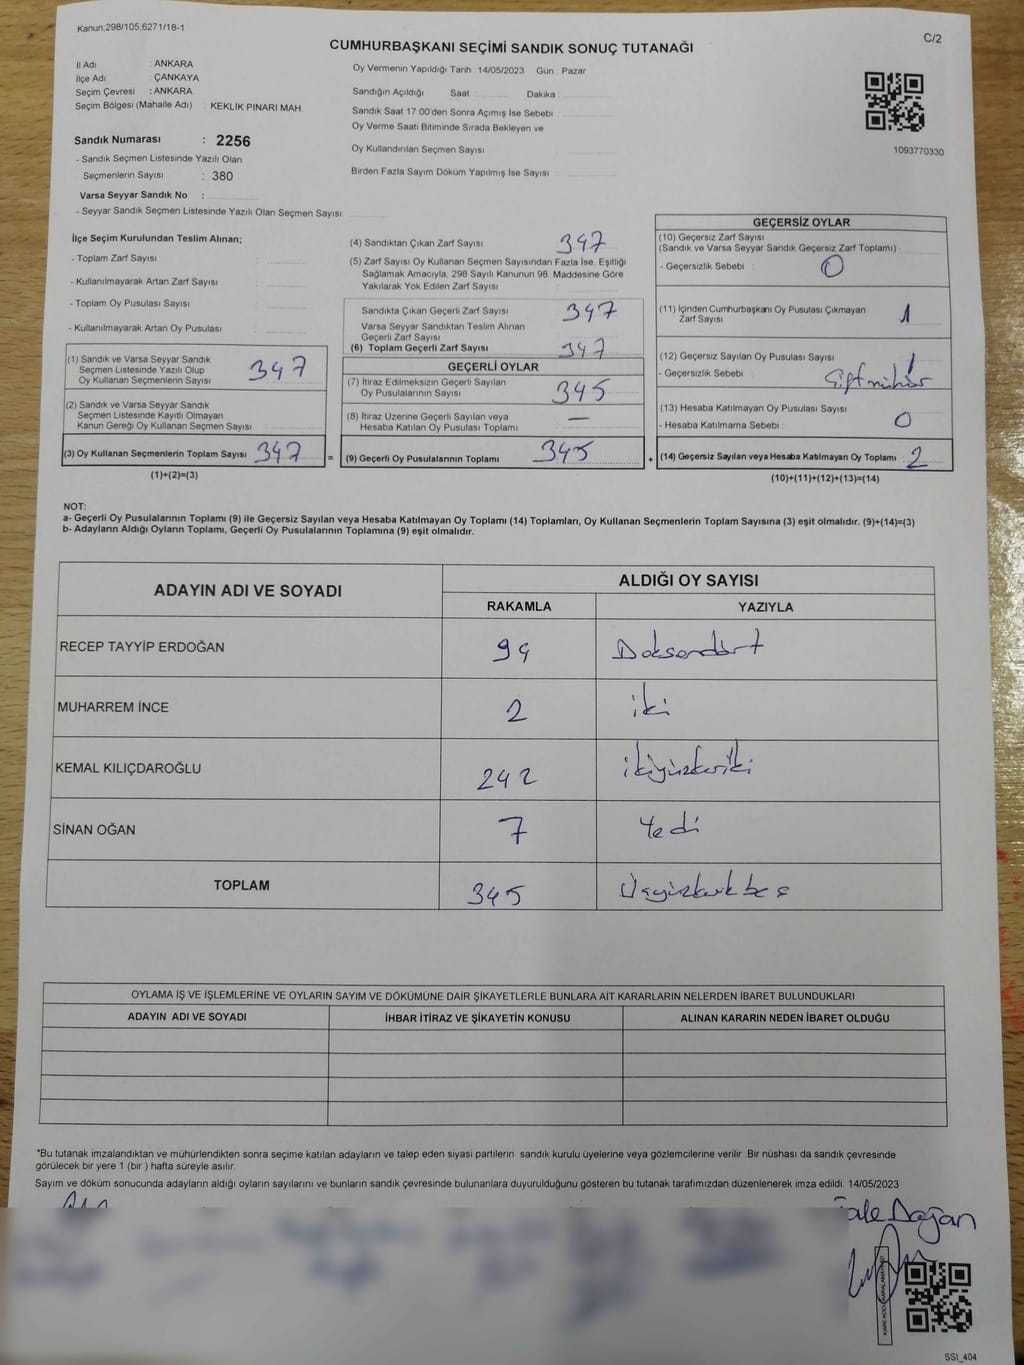 Kanun,298/105,6271/18-1
C/2
CUMHURBAŞKANI SEÇİMİ SANDIK SONUÇ TUTANAĞI
İl Adı : ANKARA
İlçe Adı : ÇANKAYA
Seçim Çevresi : ANKARA
Seçim Bölgesi (Mahalle Adı) : KEKLİK PINARI MAH.
Sandık Numarası : 2256
- Sandık Seçmen Listesinde Yazılı Olan
Seçmenlerin Sayısı : 380
Varsa Seyyar Sandık No :
- Seyyar Sandık Seçmen Listesinde Yazılı Olan Seçmen Sayısı
Oy Vermenin Yapıldığı Tarih 14/05/2023 Gün Pazar
Sandığın Açıldığı Saat Dakika
Sandık Saat 17:00'den Sonra Açımış İse Sebebi
Oy Verme Saati Bitiminde Sırada Bekleyen ve
Oy Kullandırılan Seçmen Sayısı
Birden Fazla Sayım Döküm Yapılmış İse Sayısı
1093770330
İlçe Seçim Kurulundan Teslim Alınan;
- Toplam Zarf Sayısı
- Kullanılmayarak Artan Zarf Sayısı
- Toplam Oy Pusulası Sayısı
- Kullanılmayarak Artan Oy Pusulası
(1) Sandık ve Varsa Seyyar Sandık
Seçmen Listesinde Yazılı Olup
Oy Kullanan Seçmenlerin Sayısı 347
(2) Sandık ve Varsa Seyyar Sandık
Seçmen Listesinde Kayıtlı Olmayan
Kanun Gereği Oy Kullanan Seçmen Sayısı
(3) Oy Kullanan Seçmenlerin Toplam Sayısı 347 =
(1)+(2)=(3)
(4) Sandıktan Çıkan Zarf Sayısı 347
(5) Zarf Sayısı Oy Kullanan Seçmen Sayısından Fazla İse, Eşitliği
Sağlamak Amacıyla, 298 Sayılı Kanunun 98. Maddesine Göre
Yakılarak Yok Edilen Zarf Sayısı
Sandıkta Çıkan Geçerli Zarf Sayısı 347
Varsa Seyyar Sandıktan Teslim Alınan
Geçerli Zarf Sayısı
(6) Toplam Geçerli Zarf Sayısı 347
GEÇERLİ OYLAR
(7) İtiraz Edilmeksizin Geçerli Sayılan
Oy Pusulalarının Sayısı 345
(8) İtiraz Üzerine Geçerli Sayılan veya
Hesaba Katılan Oy Pusulası Toplamı —
(9) Geçerli Oy Pusulalarının Toplamı 345 +
GEÇERSİZ OYLAR
(10) Geçersiz Zarf Sayısı
(Sandık ve Varsa Seyyar Sandık Geçersiz Zarf Toplamı)
- Geçersizlik Sebebi : 0
(11) İçinden Cumhurbaşkanı Oy Pusulası Çıkmayan
Zarf Sayısı 1
(12) Geçersiz Sayılan Oy Pusulası Sayısı 1
- Geçersizlik Sebebi : Çift mühür
(13) Hesaba Katılmayan Oy Pusulası Sayısı 0
- Hesaba Katılmama Sebebi
(14) Geçersiz Sayılan veya Hesaba Katılmayan Oy Toplamı : 2
(10)+(11)+(12)+(13)=(14)
NOT:
a- Geçerli Oy Pusulalarının Toplamı (9) ile Geçersiz Sayılan veya Hesaba Katılmayan Oy Toplamı (14) Toplamları, Oy Kullanan Seçmenlerin Toplam Sayısına (3) eşit olmalıdır. (9)+(14)=(3)
b- Adayların Aldığı Oyların Toplamı, Geçerli Oy Pusulalarının Toplamına (9) eşit olmalıdır.
ADAYIN ADI VE SOYADI ALDIĞI OY SAYISI
RAKAMLA YAZIYLA
RECEP TAYYİP ERDOĞAN 94 Doksandört
MUHARREM İNCE 2 iki
KEMAL KILIÇDAROĞLU 242 ikiyüzkırkiki
SİNAN OĞAN 7 Yedi
TOPLAM 345 Üçyüzkırkbeş
OYLAMA İŞ VE İŞLEMLERİNE VE OYLARIN SAYIM VE DÖKÜMÜNE DAİR ŞİKAYETLERLE BUNLARA AİT KARARLARIN NELERDEN İBARET BULUNDUKLARI
ADAYIN ADI VE SOYADI İHBAR İTİRAZ VE ŞİKAYETİN KONUSU ALINAN KARARIN NEDEN İBARET OLDUĞU
*Bu tutanak imzalandıktan ve mühürlendikten sonra seçime katılan adayların ve talep eden siyasi partilerin sandık kurulu üyelerine veya gözlemcilerine verilir .Bir nüshası da sandık çevresinde
görülecek bir yere 1 (bir ) hafta süreyle asılır.
Sayım ve döküm sonucunda adayların aldığı oyların sayılarını ve bunların sandık çevresinde bulunanlara duyurulduğunu gösteren bu tutanak tarafımızdan düzenlenerek imza edildi. 14/05/2023
Doğan
SSİ_404